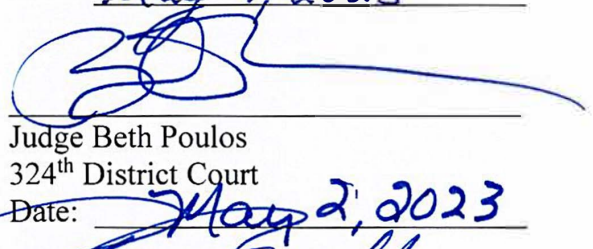 Judge Beth Poulos
324th District Court
Date: May 2, 2023